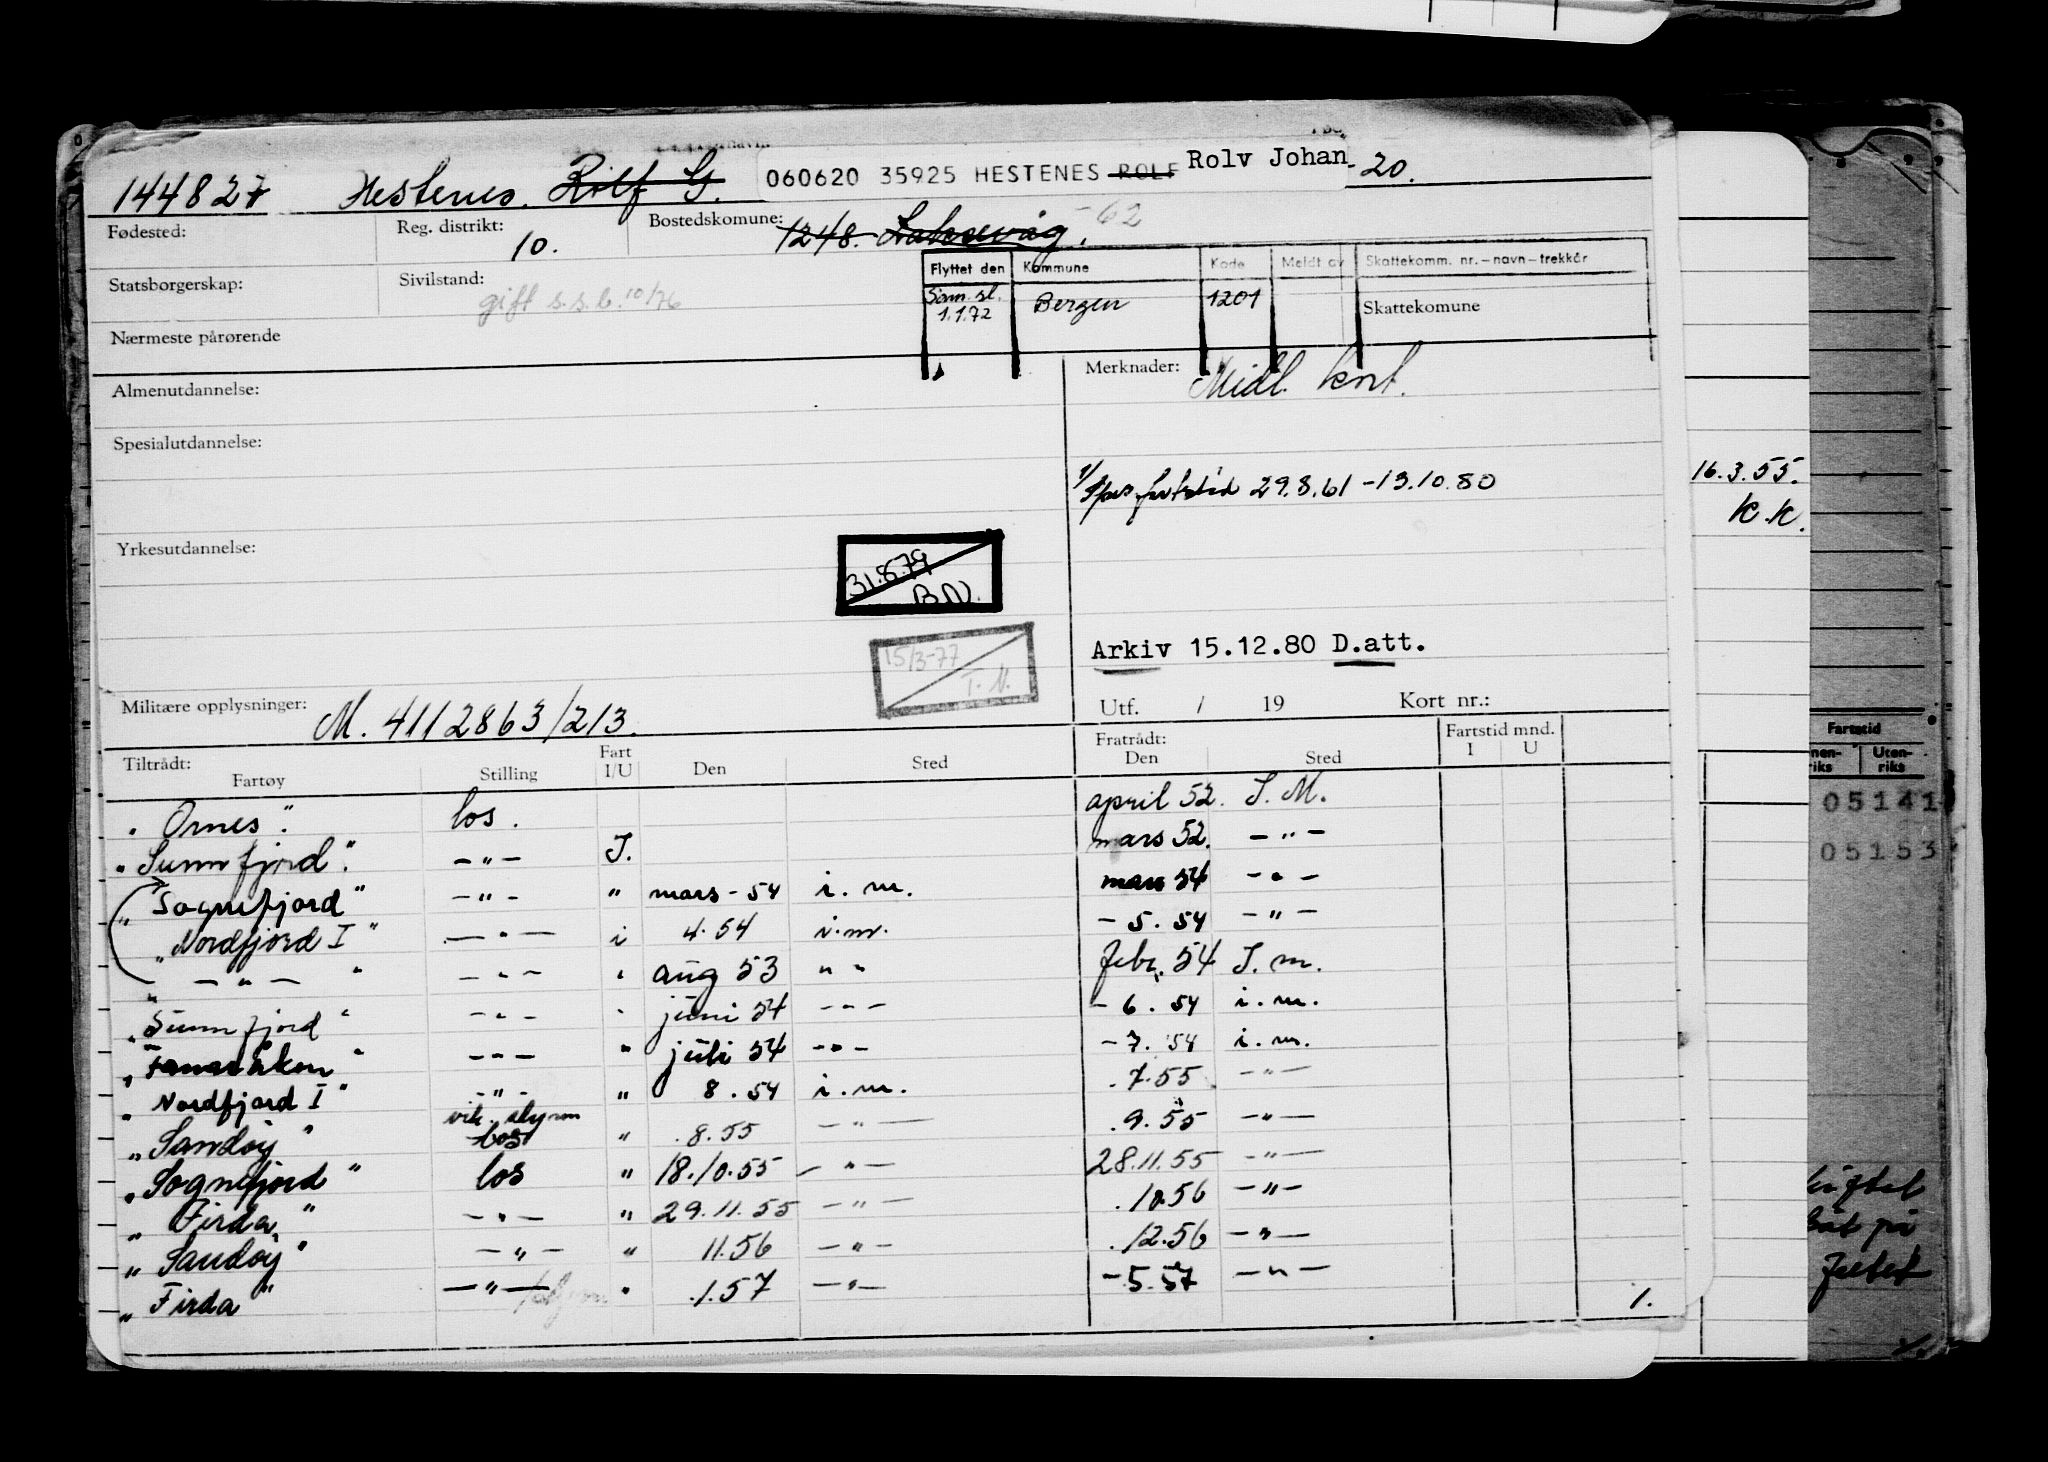 144827 Hestenes. Rolf G. 060620 35925 HESTENES ROLF Rolv Johan -20.
Fødested: Reg. distrikt: 10. Bostedskomune: 1248. Laksevåg. -62
Statsborgerskap: Sivilstand: gift s.s.b. 10/76
Flyttet den Kommune Kode Meldt av Skattekomm. nr.-navn-trekkår
Sam. sl. 1.1.72 Bergen 1201 Skattekomune
Nærmeste pårørende
Almenutdannelse: Merknader: Midl. kort.
Spesialutdannelse:
1/ fartstid 29.8.61 - 13.10.80
16.3.55.
K.K.
Yrkesutdannelse: 31.8.79
B.N.
15/3-77
T.N.
Arkiv 15.12.80 D.att.
Militære opplysninger: M. 4112863/213. Utf. / 19 Kort nr.:
Tiltrådt: Fratrådt: Fartstid mnd.
Fartøy Stilling Fart I/U Den Sted Den Sted I U
"Ornes". los. april 52. I. M.
"Sunnfjord". -"- I. mars 52. -"-
"Sognefjord" -"- " mars - 54 i. m. mars 54 -"-
"Nordfjord I" -"- i 4.54 i.m. -5.54 -"-
" -"- " -"- " aug 53 " " febr. 54 I. m.
"Sunnfjord" -"- " juni 54 -"- -6.54 i. m.
"Fanaråken" -"- " juli 54 -"- -7.54 i. m.
"Nordfjord I" -"- " 8.54 i. m. .7.55 -"-
"Sandøy" vik. styrm los " .8.55 -"- .9.55 -"-
"Sognefjord" los " 18.10.55 -"- 28.11.55 -"-
"Firda" -"- " 29.11.55 -"- .10.56 -"-
"Sandøy" -"- " 11.56 -"- .12.56 -"-
"Firda" -"- " .1.57 -"- -5.57 -"-
1.
Fartstid
Uten-
riks
05141
05153